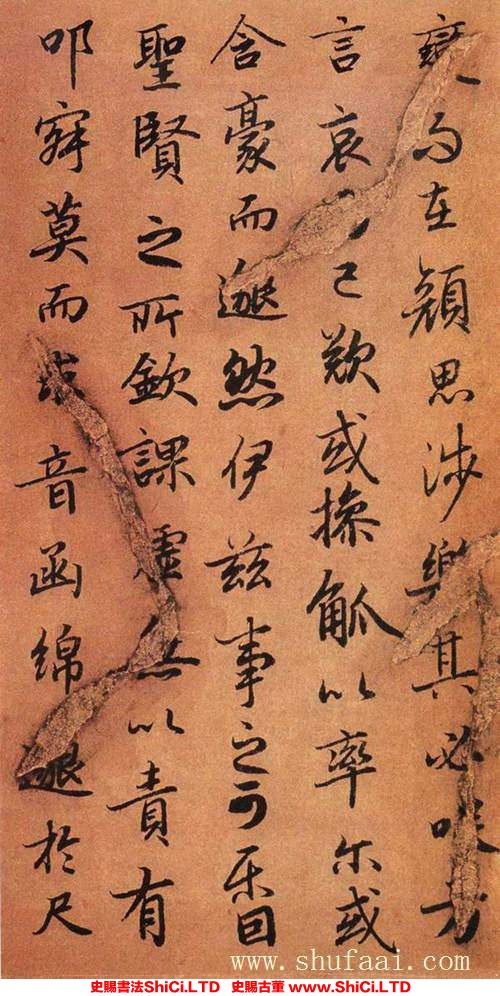 變而在顏思涉樂其必咲方
言哀已歎或操觚以率尔或
含豪而邈然伊兹事之可樂固
聖賢之所欽課虛無以責有
叩寂莫而求音函綿邈於尺
www.shufaai.com
史賜書法ShiCi.LTD 史賜古董 www.ShiCi.LTD